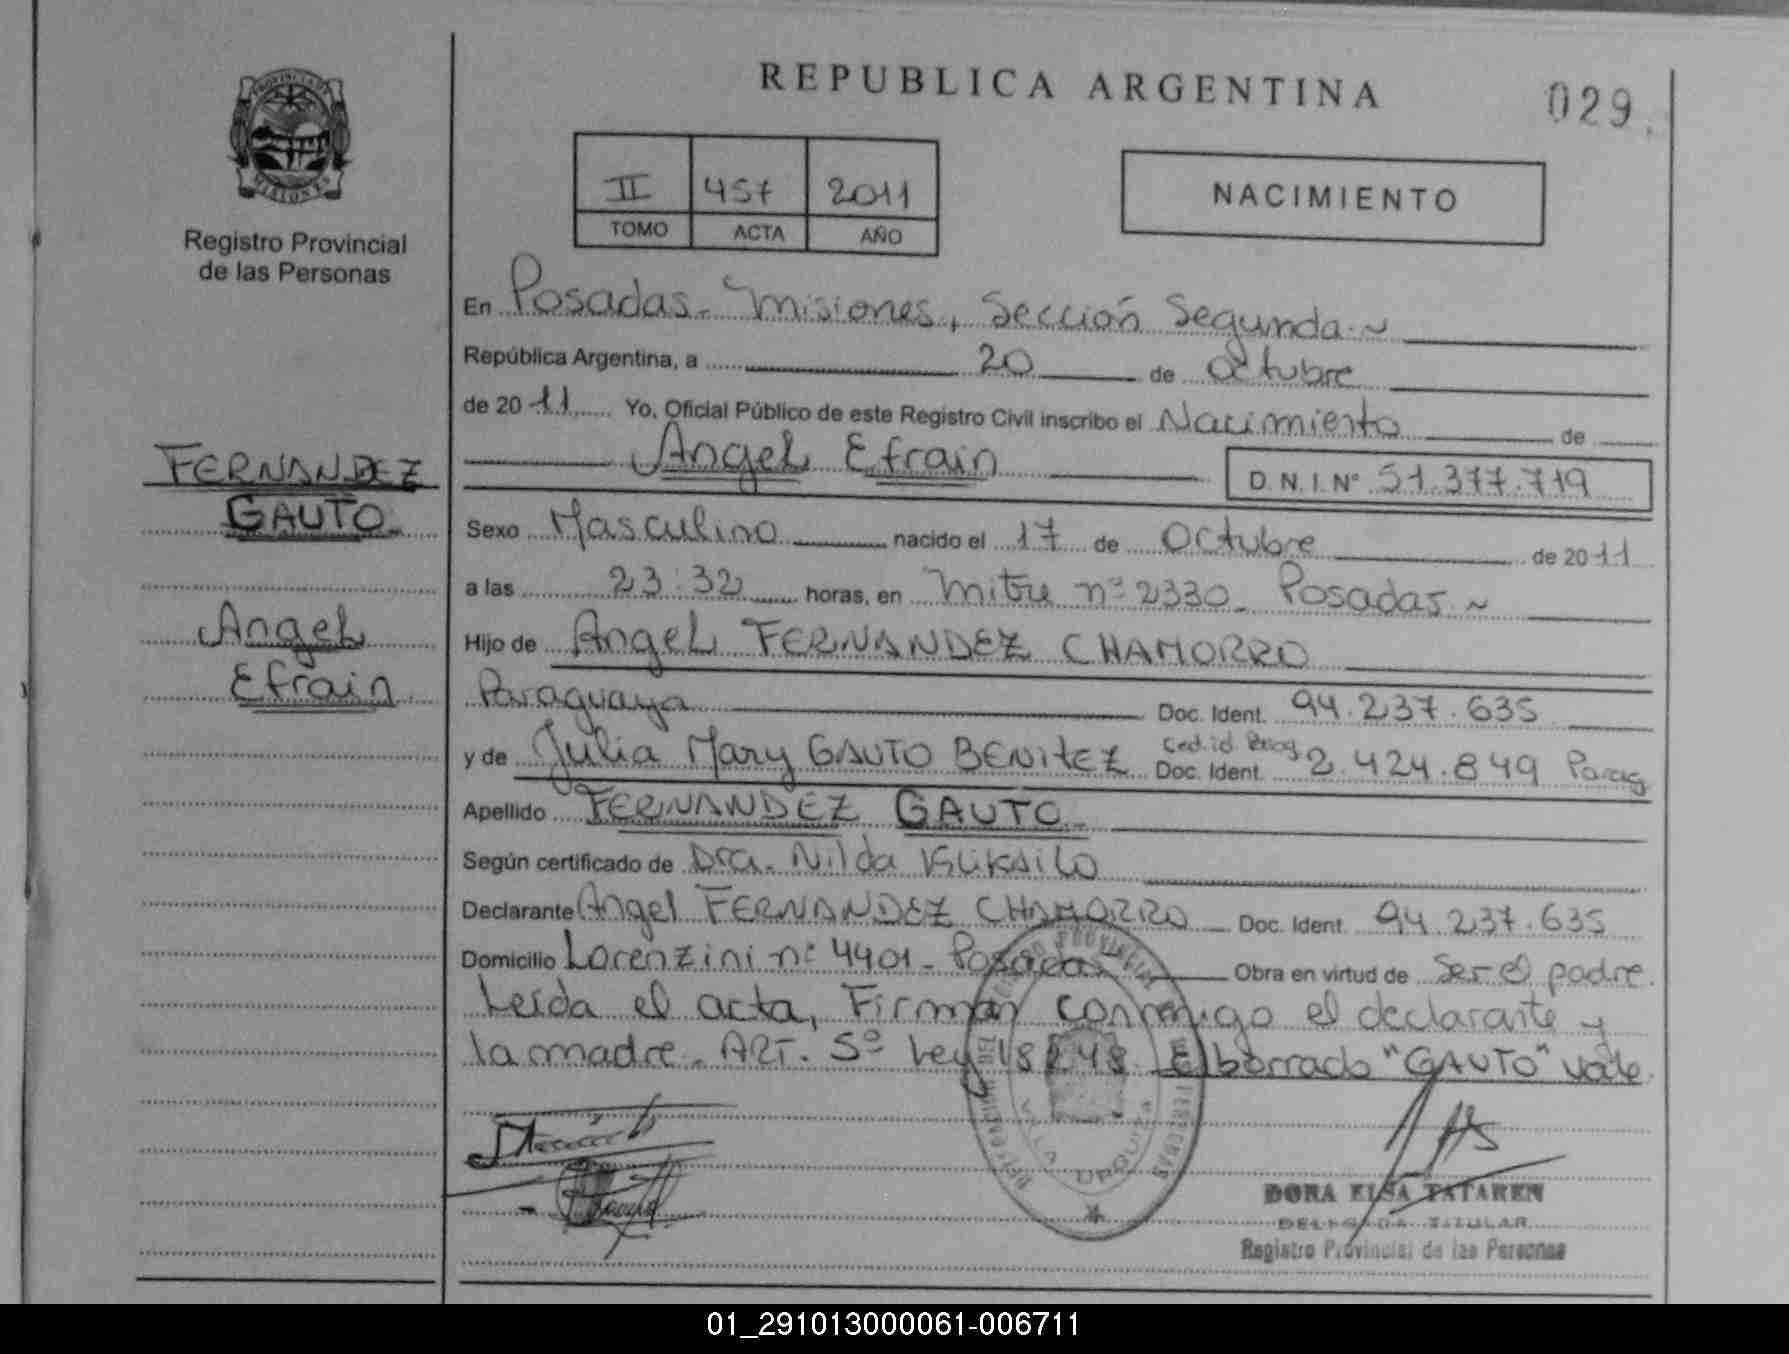 REPUBLICA ARGENTINA
029
PROVINCIA DE MISIONES
Registro Provincial
de las Personas
II 457 2011
TOMO ACTA AÑO
NACIMIENTO
En Posadas - Misiones, Sección Segunda
República Argentina, a 20 de Octubre
de 2011 Yo, Oficial Público de este Registro Civil inscribo el Nacimiento de
Angel Efrain D.N.I. Nº 51.377.719
FERNANDEZ
GAUTO
Angel
Efrain
Sexo Masculino nacido el 17 de Octubre de 2011
a las 23:32 horas, en Mitre nº 2330 - Posadas
Hijo de Angel FERNANDEZ CHAMORRO
Paraguaya Doc. Ident. 94.237.635
y de Julia Mary GAUTO BENITEZ Ced. id Parag Doc. Ident. 2.424.849 Parag
Apellido FERNANDEZ GAUTO
Según certificado de Dra. Nilda
Declarante Angel FERNANDEZ CHAMORRO Doc. Ident. 94.237.635
Domicilio Lorenzini nº 4401 - Posadas Obra en virtud de Ser el padre.
Leída el acta, Firman conmigo el declarante y
la madre. ART. 5º Ley 18248. El borrado "GAUTO" vale.
REGISTRO PROVINCIAL DE LAS PERSONAS
VILLA URQUIZA
DORA ELSA TATAREN
DELEGADA TITULAR
Registro Provincial de las Personas
01_291013000061-006711